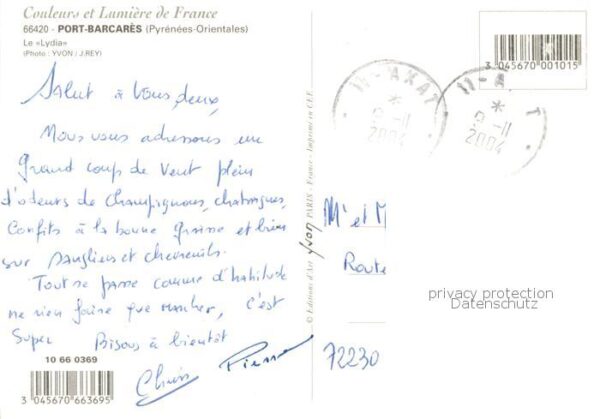 Couleurs et Lumière de France
66420 - PORT-BARCARÈS (Pyrénées-Orientales)
Le «Lydia»
(Photo : YVON / J.REY)
3 045670 001015
11-AXAT
2-11
2004
11-A T
2-11
2004
Salut à Vous deux,
Nous vous adressons un
Grand coup de vent plein
d'odeurs de champignons, chataignes,
Confits à la bonne graisse et bien
sur sangliers et chevreuils.
Tout se passe comme d'habitude
ne rien faire que marcher, c'est
Super Bisous à bientôt
Chris Pierre
10 66 0369
3 045670 663695
© Editions d'Art yvon PARIS - France - Imprimé en CEE
Mr et M
Route
72230
privacy protection
Datenschutz